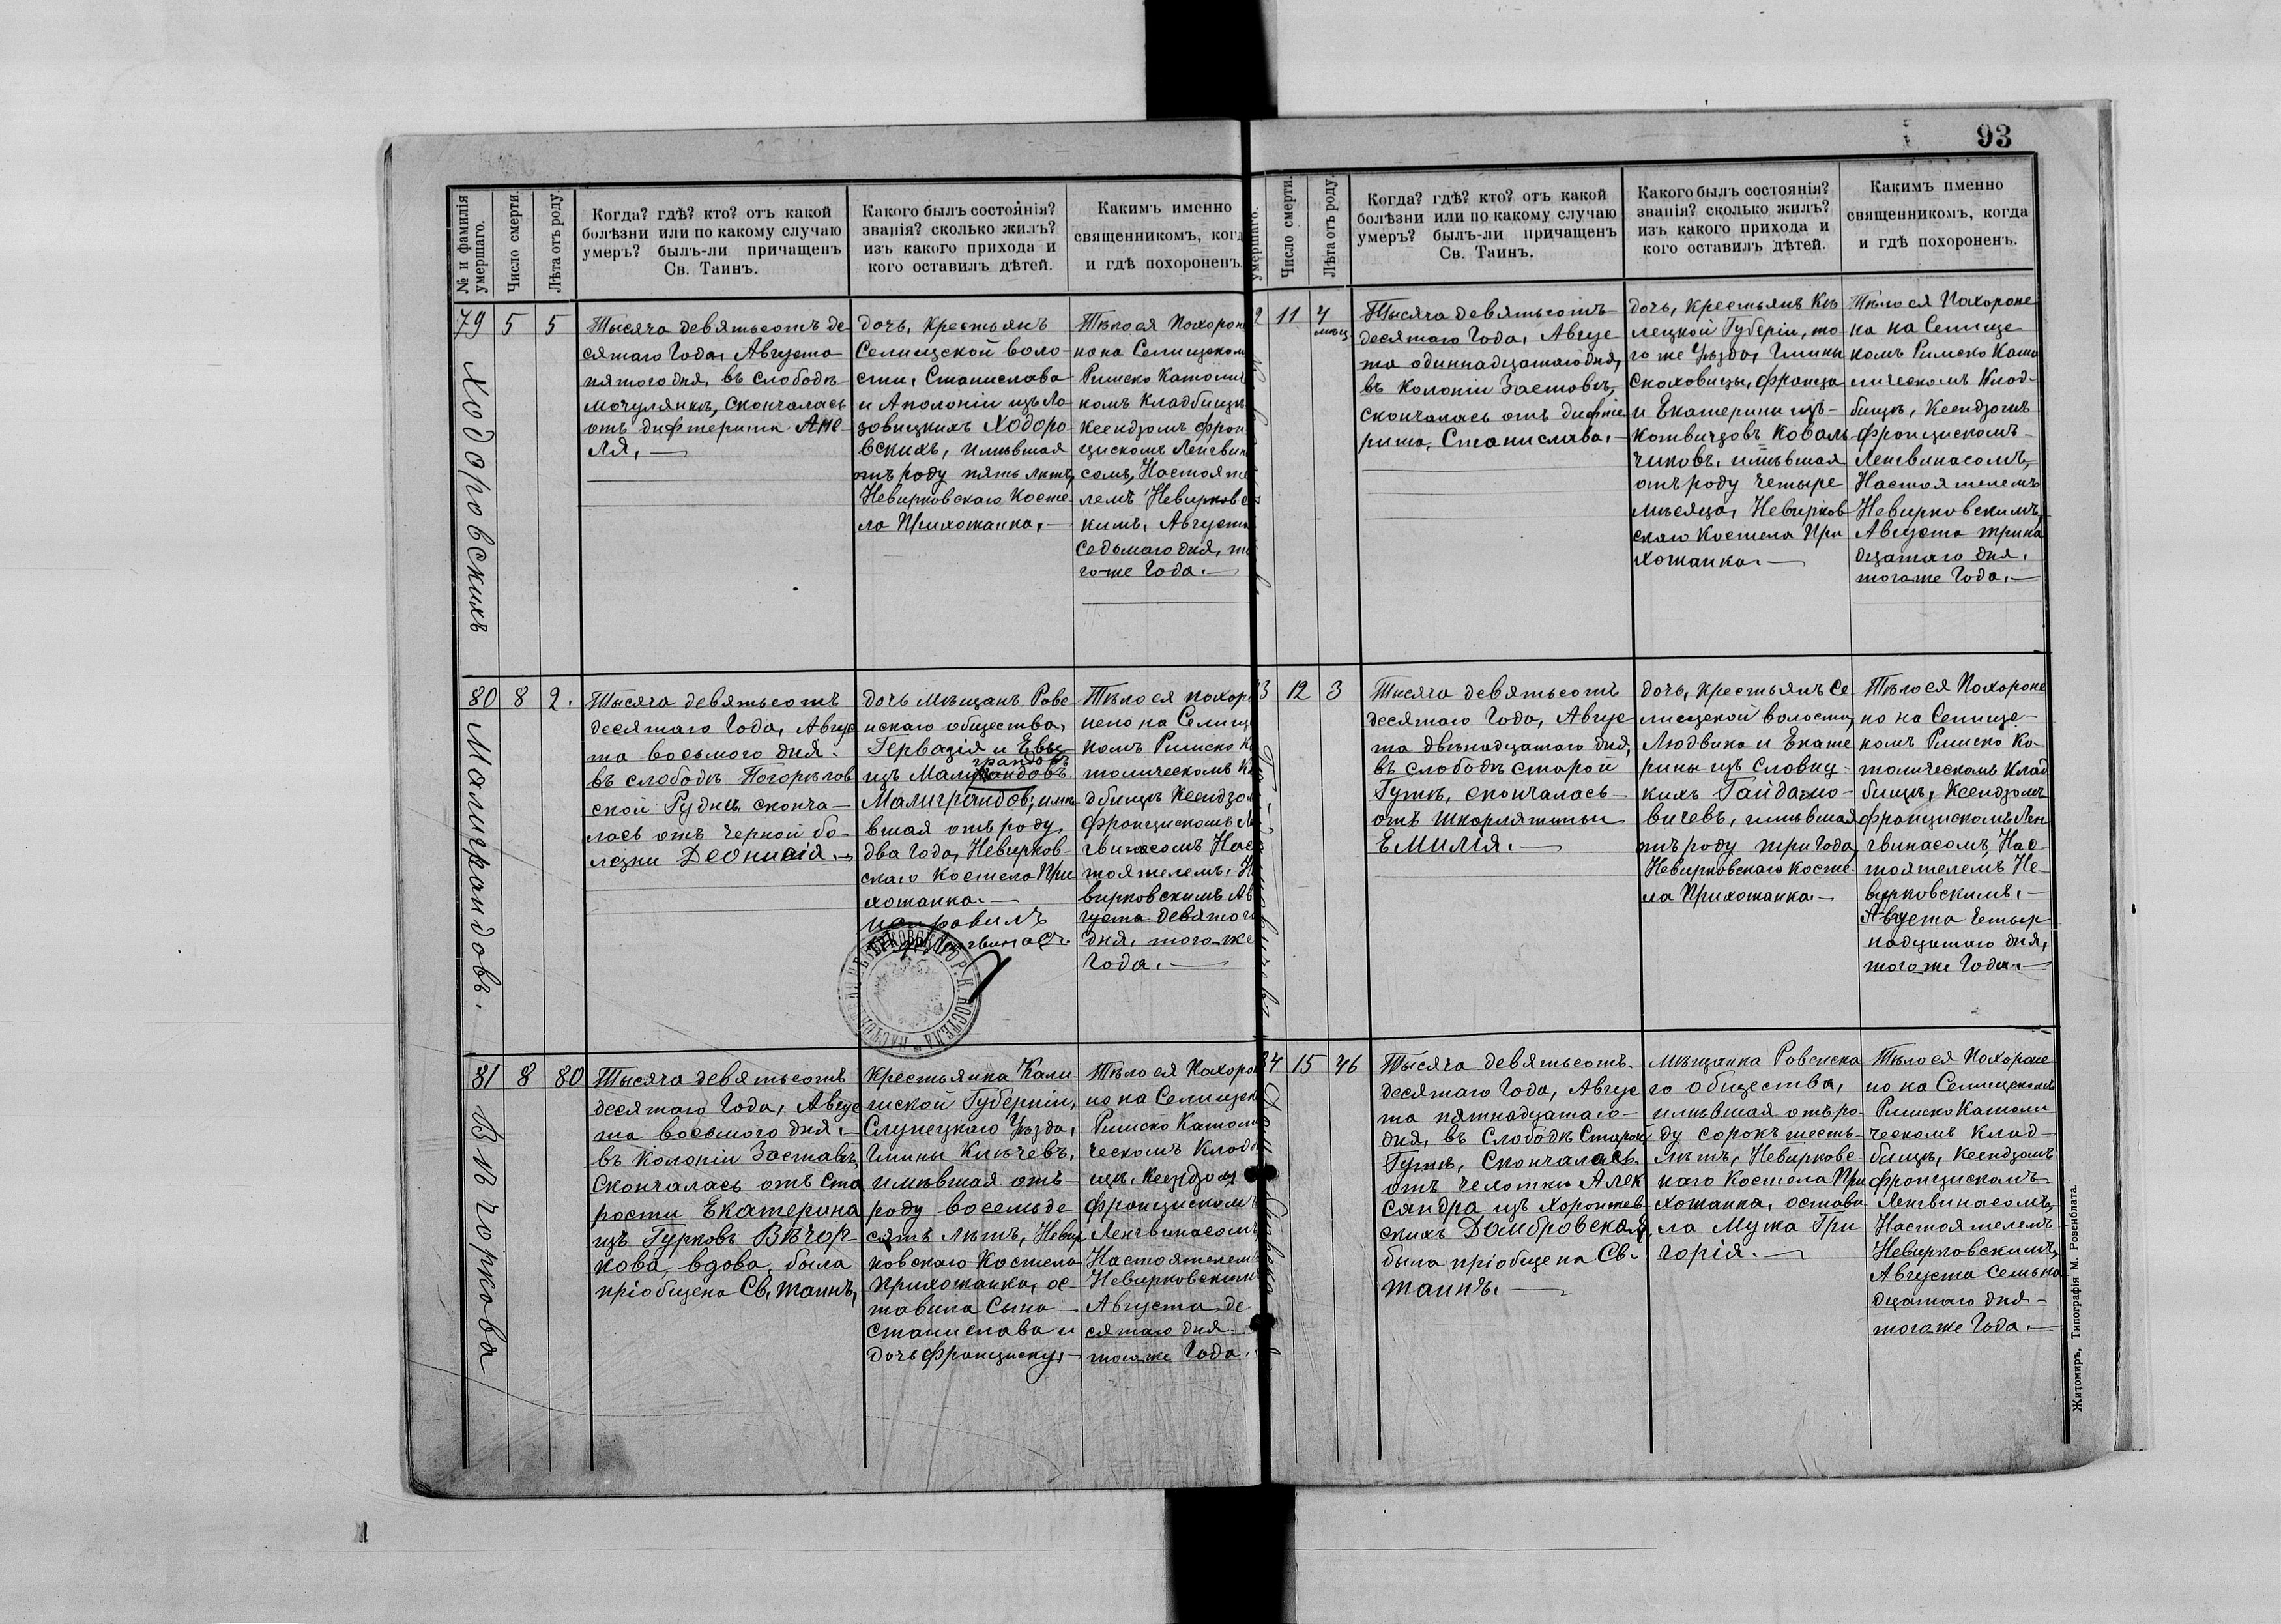 93
№ и фамилія умершаго.
Число смерти.
Лѣта отъ роду.
Когда? гдѣ? кто? отъ какой
болѣзни или по какому случаю
умеръ? былъ-ли причащенъ
Св. Таинъ.
Какого былъ состоянія?
званія? сколько жилъ?
изъ какого прихода и
кого оставилъ дѣтей.
Какимъ именно
священникомъ, когд
и гдѣ похороненъ.
79
Ходоровскихъ
5
5
Тысяча девятьсотъ де
сятаго Года, Августа
пятого дня, въ слободѣ
Мочулянкѣ, скончалась
отъ дифтерита Ане
ля, —
дочь, Крестьянъ
Селищской воло-
сти, Станислава
и Аполоніи изъ Ло
зовицкихъ Ходоро
вскихъ, имѣвшая
отъ роду пять лѣтъ,
Невирковскаго Косте
ла Прихожанка, —
Тѣло ея Похороне
но на Селищском
Римско Католич
комъ Кладбищѣ
Ксендзомъ Фран
цискомъ Ленгвин
сомъ, Настояте
лемъ Невирковс
кимъ, Августа
седьмаго дня, то
го-же Года. —
80
Малиграндовъ.
8
2.
Тысяча девятьсотъ
десятаго Года, Авгус
та восьмого дня.
въ слободѣ Погорѣлов
ской Рудни сконча—
лась отъ черной бо-
лезни Деонисія. —
дочь Мѣщанъ Рове
нскаго общества,
Гервазія и Евы
грандовъ
изъ Малиґрандовъ
Малиграндовъ, имѣ
вшая отъ роду
два Года, Невирков-
скаго Костела При
хожанка. —
исправилъ
НЕВИРКОВСКАГО Р. К. КОСТЕЛА
Тѣло ея похоро
нено на Селищ
комъ Римско К
толическомъ К
дбищѣ Ксендзо
Францискомъ Ле
гвинасомъ Нас
тоятелемъ Н
вирковскимъ Ав
густа девятог
дня, того-же
Года. —
81
Вѣчоркова
8
80
Тысяча девятьсотъ
десятаго Года, Авгус
та восьмого дня, —
въ Колоніи Заставѣ,
Скончалась отъ ста
рости Екатерина
изъ Турковъ Вѣчор-
кова, вдова, была
пріобщена Св, таинъ,
Крестьянка Кали
шской Губерніи,
Слупецкаго Уѣзда,
Гмины Ключевъ,
имѣвшая отъ—
роду восемьде
сятъ лѣтъ, Невир
ковскаго Костела
Прихожанка, ос-
тавила Сына —
Станислава и
дочь Франциску, —
Тѣло ея Похоро
но на Селищск
Римско Катол
ческомъ Кладб
щѣ, Ксендзом
Францискомъ
Ленгвинасомъ
Настоятелем
Невирковским
Августа де
сятаго дня.
того же Года.
умершаго.
Число смерти.
Лѣта отъ роду.
Когда? гдѣ? кто? отъ какой
болѣзни или по какому случаю
умеръ? былъ-ли причащенъ
Св. Таинъ.
Какого былъ состоянія?
званія? сколько жилъ?
изъ какого прихода и
кого оставилъ дѣтей.
Какимъ именно
священникомъ, когда
и гдѣ похороненъ.
2
11
4
мѣсц.
Тысяча девятьсотъ
десятаго Года, Авгус
та одиннадцатаго дня,
въ Колоніи Заставѣ,
скончалась отъ дифте
рита, Станислава, —
дочь, Крестьянъ Кѣ
лецкой Губерніи, то
го же Уѣзда, Гмины
Снаховицы, Францa
и Екатерины изъ—
Котвичзовъ Коваль
чиковъ, имѣвшая
отъ роду четыре
мѣсяца, Невирков
скаго Костела При
хожанка. —
Тѣло ея Похороне
но на Селище
комъ Римско Като
лическомъ Клад-
бищѣ, Ксендзомъ
Францискомъ—
Ленгвинасомъ,
Настоятелемъ
Невирковскимъ,
Августа трина
дцатаго дня.
тогоже Года. —
3
12
3
Тысяча девятьсотъ
десятаго Года, Авгус
та двѣнадцатаго дня,
въ слободѣ старой
Гутѣ, скончалась—
отъ шкорлятины
Емилія. —
дочь, Крестьянъ Се
лисцкой волости,
Людвика и Екате
рины изъ Словиц-
кихъ Гайдамо-
вичевъ, имѣвшая
отъ роду три Года,
Невирковскаго Косте
ла Прихожанка. —
Тѣло ея Похороне
но на Селище—
комъ Римско Ка-
толическомъ Клад
бищѣ, Ксендзомъ
Францискомъ Лен
гвинасомъ, Нас-
тоятелемъ Не-
вирковскимъ, —
Августа четыр
надцатаго дня,
того же Года. —
84
15
46
Тысяча девятьсотъ.
десятаго Года, Авгус
та пятнадцатаго—
дня, въ Слободѣ Старой
Гутѣ, Скончалась.
отъ чехотки Алек
сандра изъ Хоронжев
скихъ Домбровская,
была пріобщена Св.
таинъ. —
Мѣщанка Ровенска
го общества,
имѣвшая отъ ро
ду сорокъ шесть
лѣтъ, Невирковс
каго Костела При
хожанка, остави
ла Мужа Гри
горія. —
Тѣло ея Похороне
но на Селищскомъ
Римско Католи
ческомъ Клад—
бищѣ, Ксендзомъ
Францискомъ
Ленгвинасомъ,
Настоятелемъ
Невирковскимъ,
Августа семьна
дцатаго дня—
того же Года. —
Житомиръ, Типографія М. Розенблата.